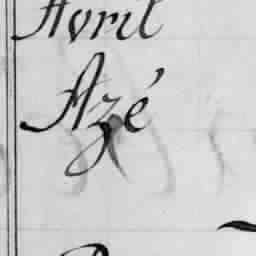 Avril
Azé